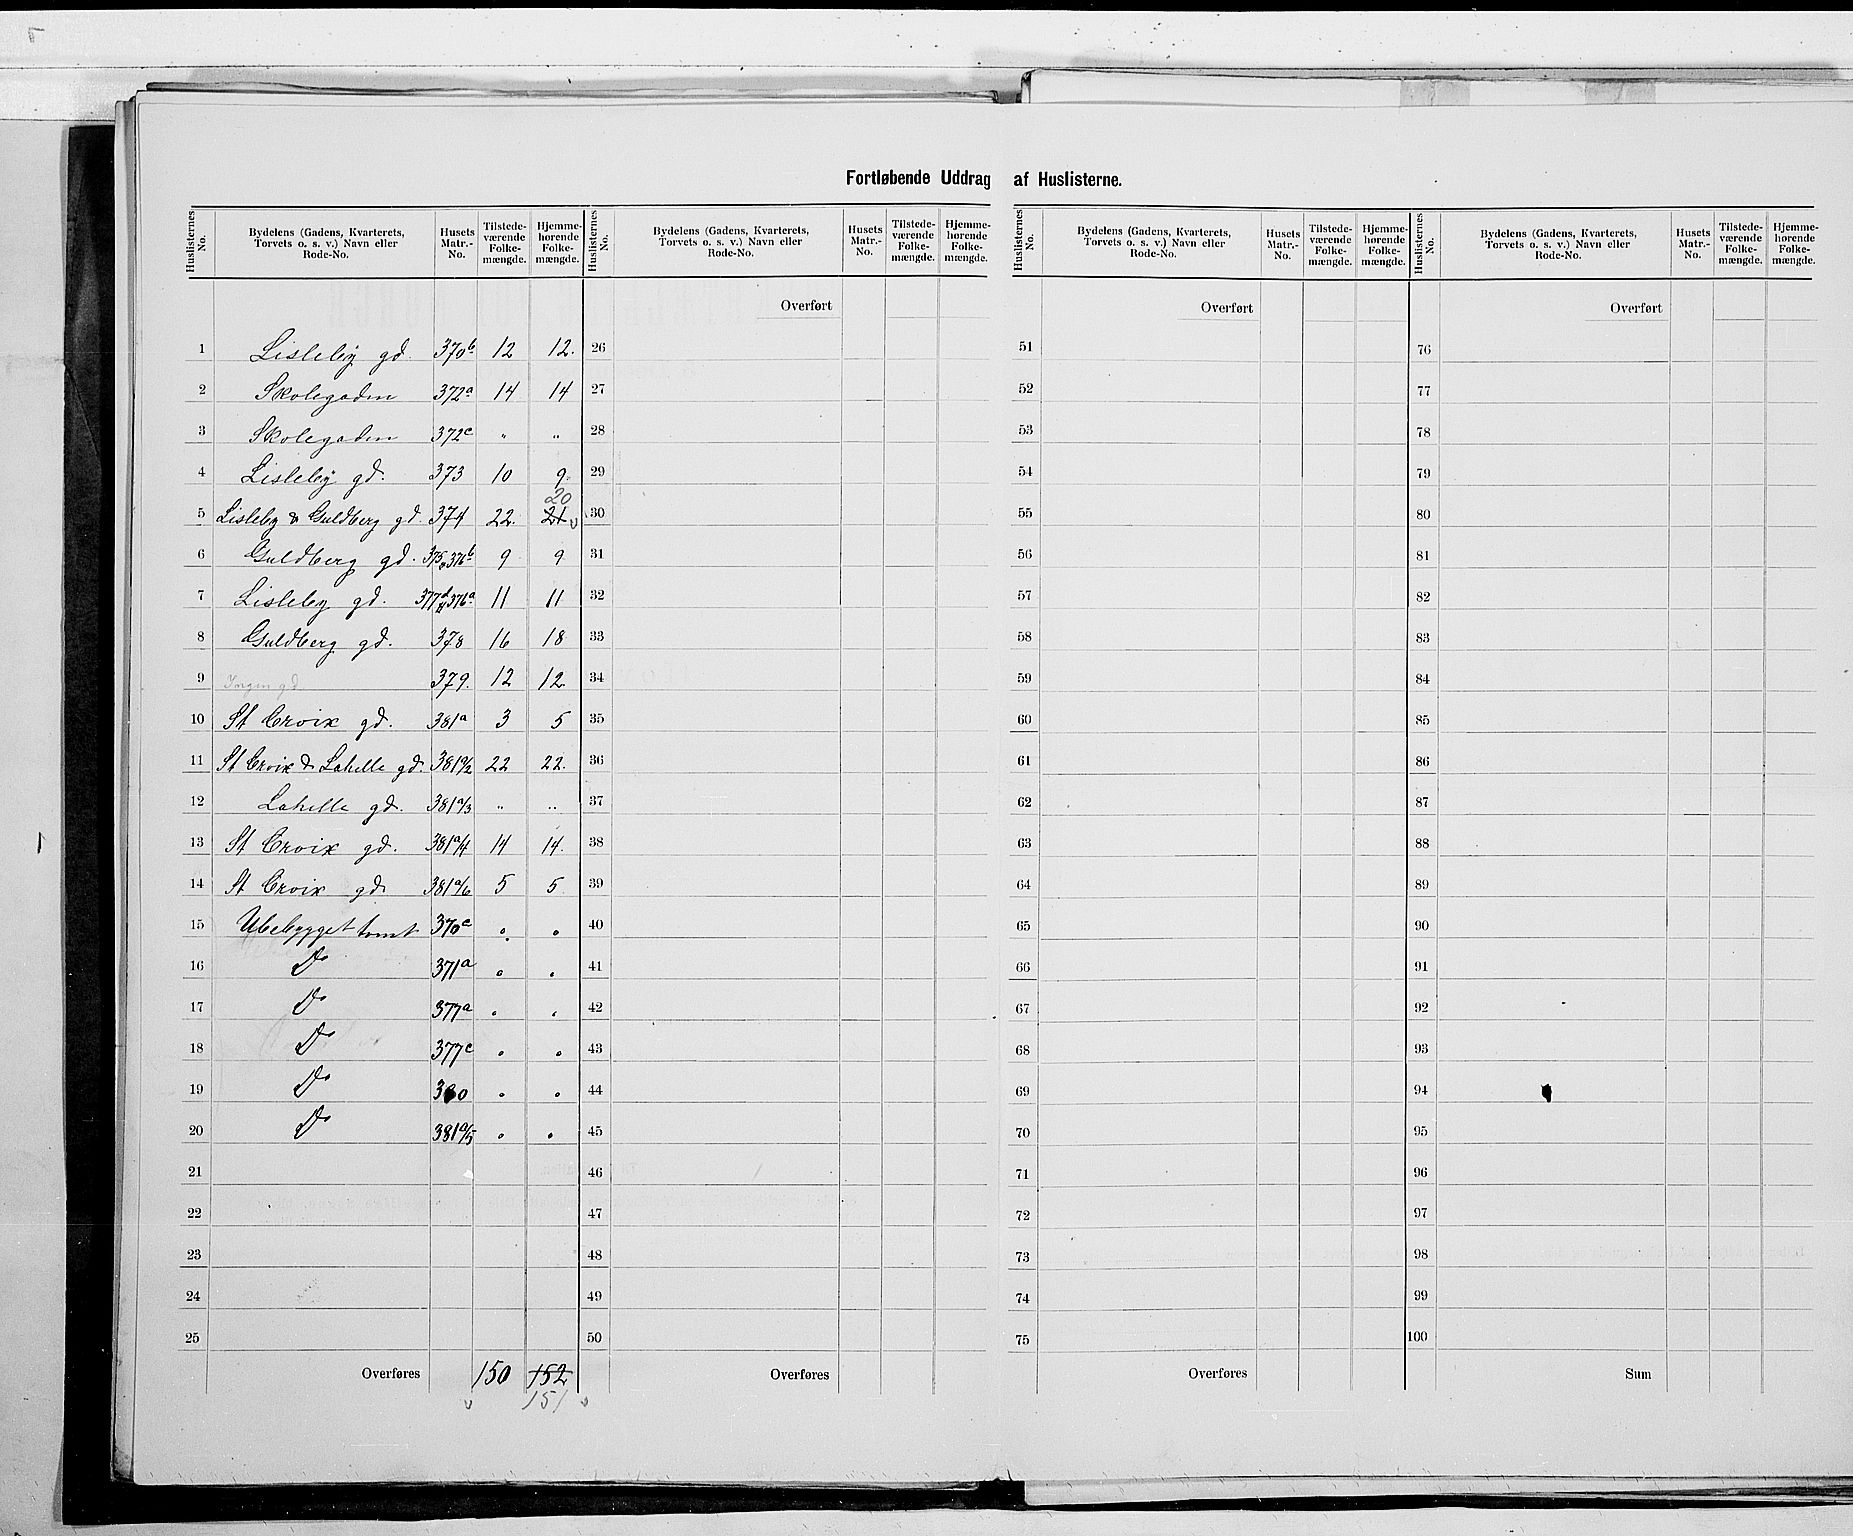 Fortløbende Uddrag af Huslisterne.
Huslisternes No. | Bydelens (Gadens, Kvarterets, Torvets o. s. v.) Navn eller Rode-No. | Husets Matr.-No. | Tilstedeværende Folkemængde. | Hjemmehørende Folkemængde.
Huslisternes No. | Bydelens (Gadens, Kvarterets, Torvets o. s. v.) Navn eller Rode-No. | Husets Matr.-No. | Tilstedeværende Folkemængde. | Hjemmehørende Folkemængde.
Huslisternes No. | Bydelens (Gadens, Kvarterets, Torvets o. s. v.) Navn eller Rode-No. | Husets Matr.-No. | Tilstedeværende Folkemængde. | Hjemmehørende Folkemængde.
Huslisternes No. | Bydelens (Gadens, Kvarterets, Torvets o. s. v.) Navn eller Rode-No. | Husets Matr.-No. | Tilstedeværende Folkemængde. | Hjemmehørende Folkemængde.
Overført Overført Overført
1 Lisleby gd. 370b 12 12. 26 51 76
2 Skolegaden 372a 14 14 27 52 77
3 Skolegaden 372c " " 28 53 78
4 Lisleby gd. 373 10 9. 29 54 79
20
5 Lisleby & Guldberg gd. 374 22. 21 30 55 80
6 Guldberg gd. 375 & 376b 9 9 31 56 81
7 Lisleby gd. 377d & 376a 11 11 32 57 82
8 Guldberg gd. 378 16 18 33 58 83
9 Ingen gd 379. 12 12. 34 59 84
10 St Croix gd. 381a 3 5 35 60 85
11 St Croix & Lahelle gd. 381a/2 22 22. 36 61 86
12 Lahelle gd. 381a/3 " " 37 62 87
13 St Croix gd. 381a/4 14 14. 38 63 88
14 St Croix gd. 381a/6 5 5 39 64 89
15 Ubebygget tomt 370c 40 65 90
16 Do 371a 41 66 91
17 Do 377a 42 67 92
18 Do 377c 43 68 93
19 Do 380 44 69 94
20 Do 381a/5 45 70 95
21 46 71 96
22 47 72 97
23 48 73 98
24 49 74 99
25 50 75 100
Overføres 150 152 Overføres Overføres Sum
151